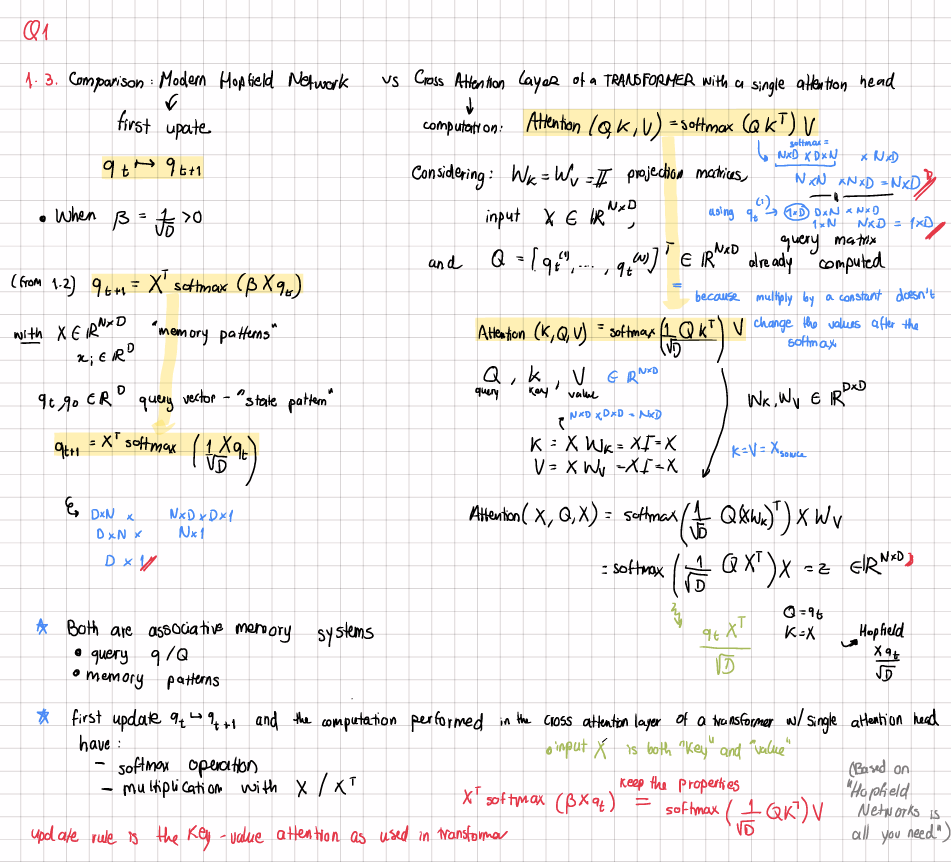 Q1
1.3. Comparison: Modern Hopfield Network vs Cross Attention Layer of a TRANSFORMER with a single attention head
↓
first upate
q_t ↦ q_{t+1}
• When β = 1/√D > 0
(from 1.2) q_{t+1} = X^T softmax (β X q_t)
with X ∈ ℝ^{N×D} "memory patterns"
x_i ∈ ℝ^D
q_t, q_0 ∈ ℝ^D query vector - "state pattern"
q_{t+1} = X^T softmax (1/√D X q_t)
D×N × N×D × D×1
D×N × N×1
D × 1
↓
computation: Attention (Q K, V) = softmax (Q K^T) V
softmax =
N×D × D×N × N×D
N×N × N×D = N×D
Considering: W_K = W_V = II projection matrices,
using q_t^{(1)} → 1×D D×N × N×D
1×N N×D = 1×D
input X ∈ ℝ^{N×D},
and Q = [q_t^{(1)}, ..., q_t^{(N)}]^T ∈ ℝ^{N×D} query matrix already computed
= because multiply by a constant doesn't
change the values after the
softmax
Attention (K, Q, V) = softmax (1/√D Q K^T) V
Q, K, V ∈ ℝ^{N×D}
query key value
W_K, W_V ∈ ℝ^{D×D}
N×D × D×D = N×D
K = X W_K = X I = X
V = X W_V = X I = X
K = V = X_source
Attention (X, Q, X) = softmax (1/√D Q (X W_K)^T) X W_V
= softmax (1/√D Q X^T) X = z ∈ ℝ^{N×D}
q_t X^T / √D
Q = q_t
K = X
→ Hopfield
X q_t / √D
★ Both are associative memory systems
• query q / Q
• memory patterns
★ first update q_t ↦ q_{t+1} and the computation performed in the cross attention layer of a transformer w/ single attention head
have:
• input X is both "key" and "value"
- softmax operation
- multiplication with X / X^T
keep the properties
X^T softmax (β X q_t) = softmax (1/√D Q K^T) V
(Based on
"Hopfield
Networks is
all you need")
update rule is the Key-value attention as used in transformer